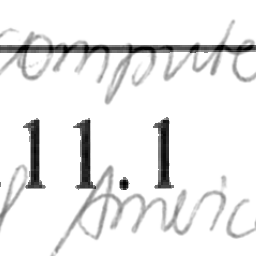 compute
11.1
Americ